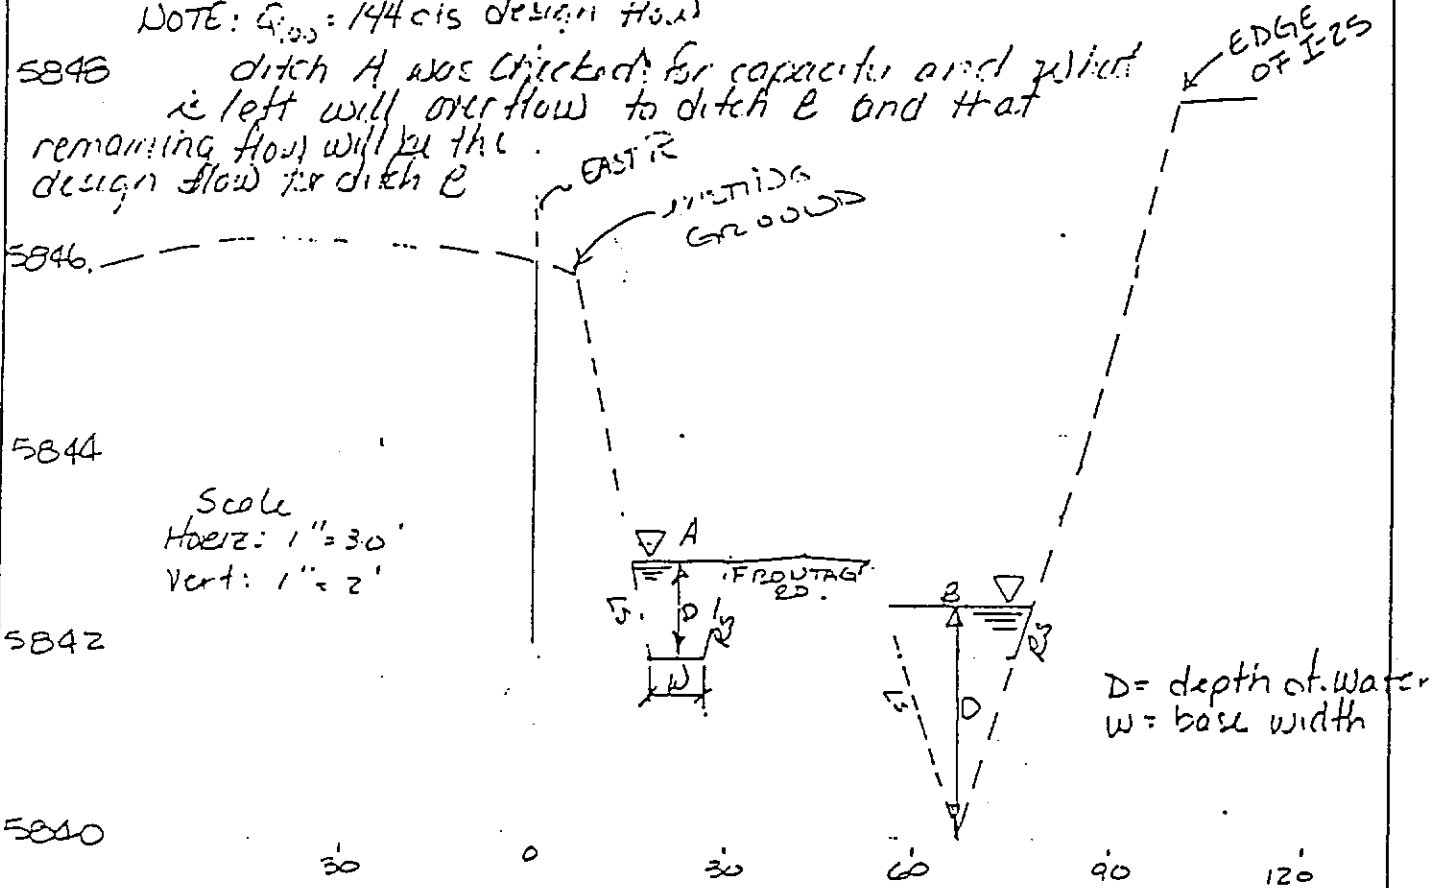 NOTE: Q100 = 144 cfs design flow
5848
ditch A was checked for capacity and what
is left will overflow to ditch B and that
remaining flow will be the
design flow for ditch B
EDGE
OF I-25
EAST
EXISTING
GROUND
5846
5844
Scale
Horiz: 1"=30'
Vert: 1"=2'
A
FRONTAGE
RD.
D
W
B
D
5842
D= depth of water
W= base width
5840
30 0 30 60 90 120